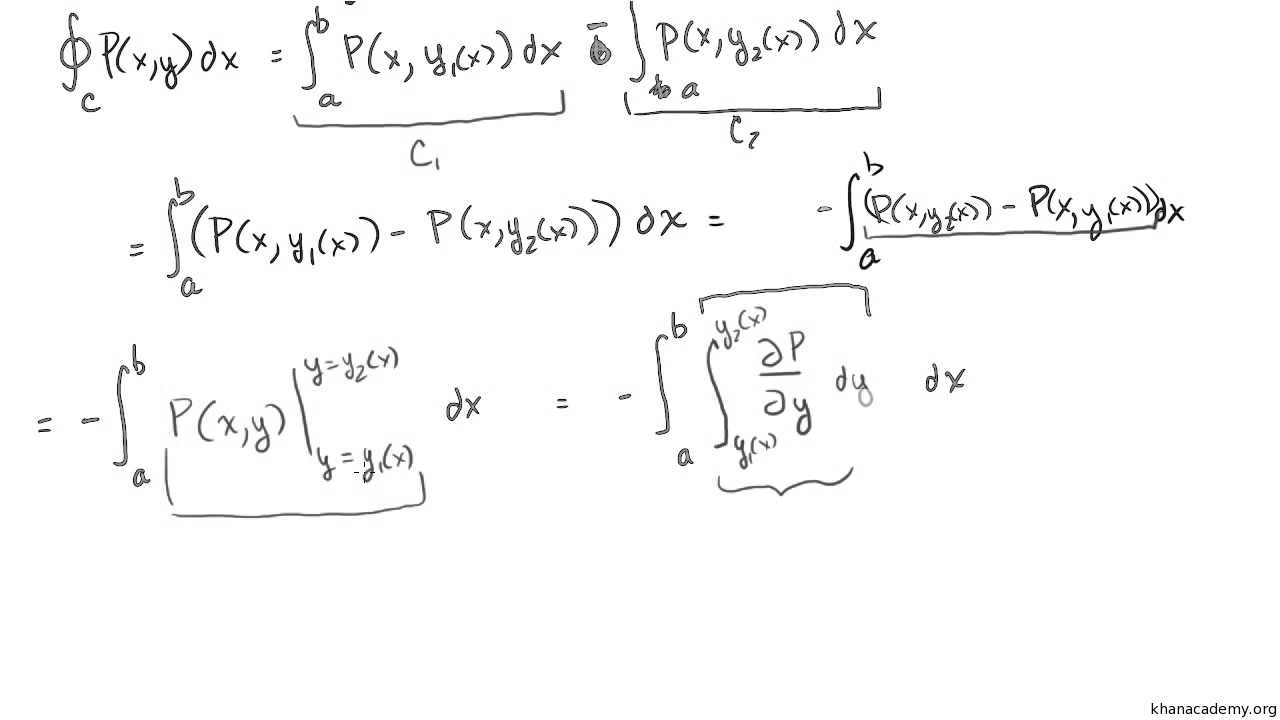 ∮_C P(x,y) dx = ∫_a^b P(x, y₁(x)) dx − ∫_a P(x, y₂(x)) dx
C₁ C₂
= ∫_a^b (P(x, y₁(x)) − P(x, y₂(x))) dx = − ∫_a^b (P(x, y₂(x)) − P(x, y₁(x))) dx
= − ∫_a^b P(x,y) |_{y = y₁(x)}^{y = y₂(x)} dx = − ∫_a^b ∫_{y₁(x)}^{y₂(x)} ∂P/∂y dy dx
khanacademy.org